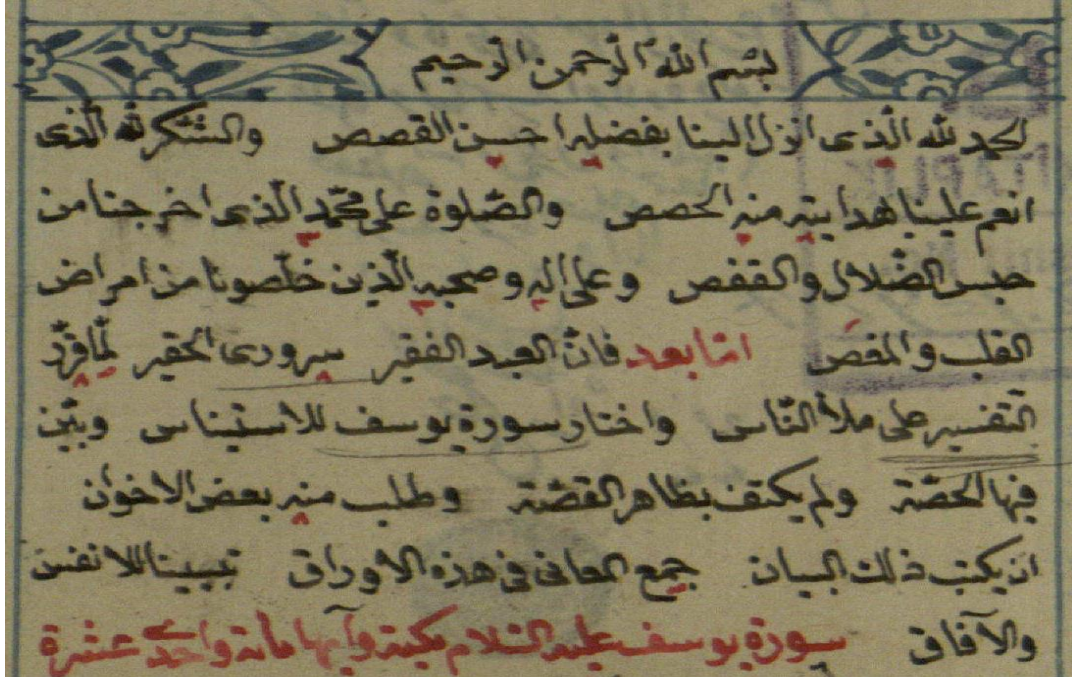 بسم الله الرحمن الرحيم
الحمد لله الذى انزل الينا بفضله احسن القصص والشكر له الذى
انعم علينا هدايته منه الحصص والصلوة على محمد الذى اخرجنا من
حبس الضلال والقفص وعلى اله وصحبه الذين خلصونا من امراض
القلب والمغص اما بعد فان العبد الفقير سرورى الحقير لما قرر
التفسير على ملأ الناس واختار سورة يوسف للاستيناس وبين
فيها الحصة ولم يكتف بظاهر القصة وطلب منه بعض الاخوان
ان يكتب ذلك البيان جمع المعانى فى هذه الاوراق تبيينا للانفس
والآفاق سورة يوسف عليه السلام مكية وآيها مائة واحدى عشرة